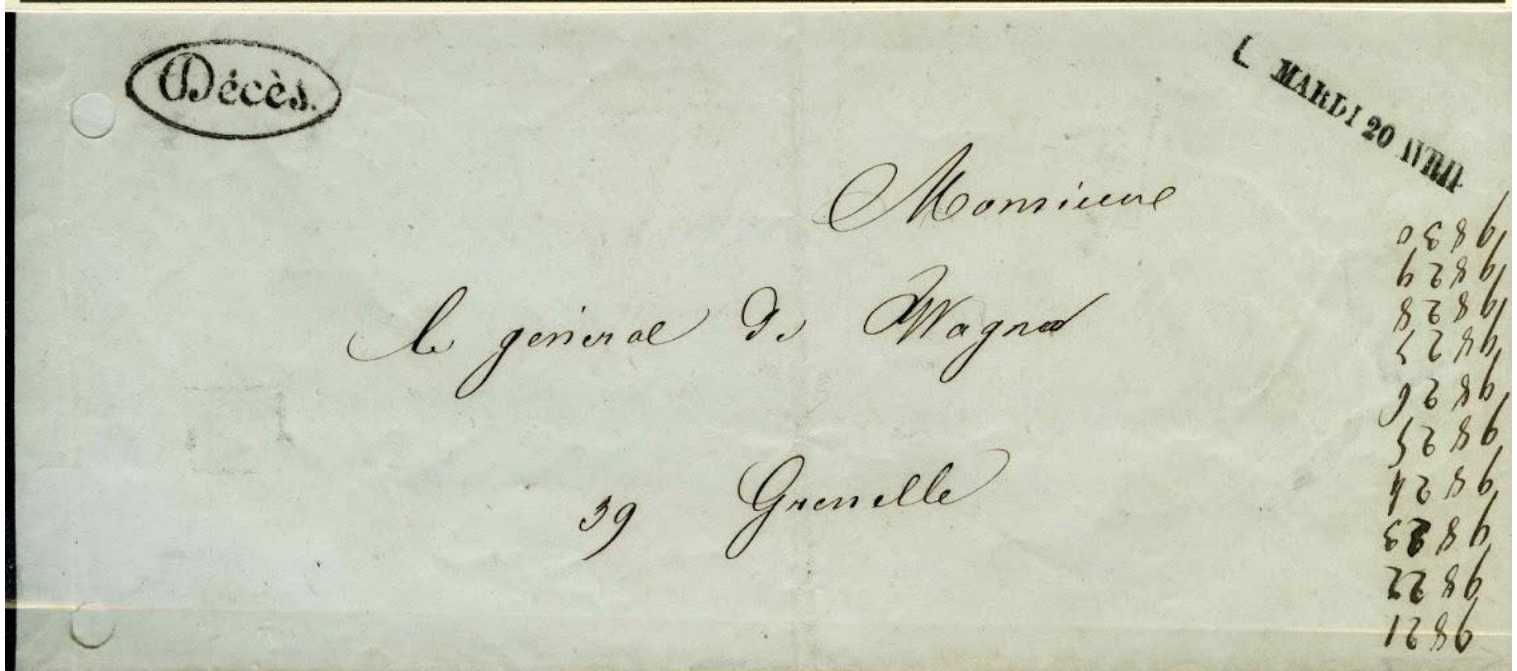 Décès.
MARDI 20 AVRIL
Monsieur
le général de Wagner
39 Grenelle
9830
9829
9828
9827
9826
9825
9824
9823
9822
9821